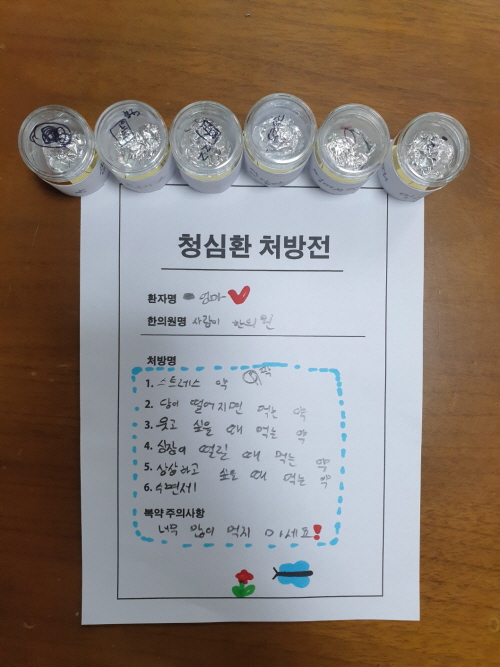 청심환 처방전
환자명 엄마
한의원명 사랑이 한의원
처방명
1. 스트레스 약
2. 당이 떨어지면 먹는 약
3. 웃고 싶을 때 먹는 약
4. 심장이 떨릴 때 먹는 약
5. 상상하고 싶을 때 먹는 약
6. 수면제
복약 주의사항
너무 많이 먹지 마세요!